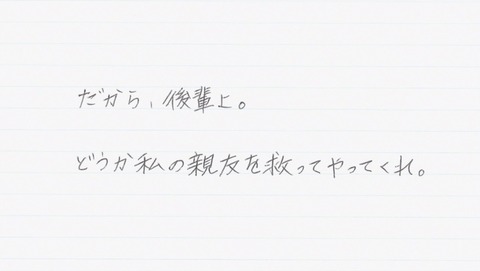 だから、後輩よ。
どうか私の親友を救ってやってくれ。